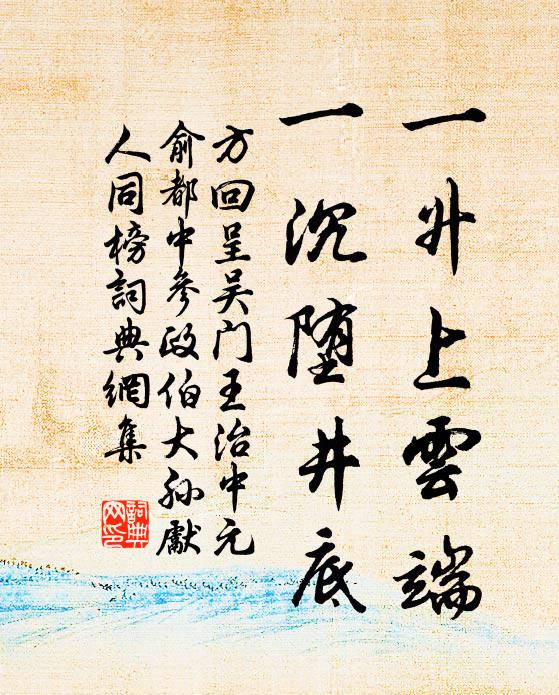 一升上雲端
一沉堕井底
方回呈吴门王治中元
俞都中参政伯大孙獻
人同榜詞典網集
詞典网印